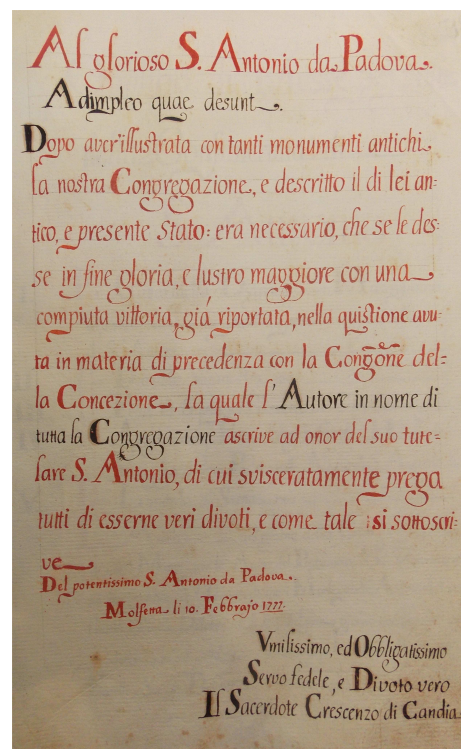 Al glorioso S. Antonio da Padova.
Adimpleo quae desunt.
Dopo aver'illustrata con tanti monumenti antichi
la nostra Congregazione, e descritto il di lei an=
tico, e presente Stato: era necessario, che se le des=
se in fine gloria, e lustro maggiore con una
compiuta vittoria, giá riportata, nella quistione avu=
ta in materia di precedenza con la Congõne del=
la Concezione, la quale l'Autore in nome di
tutta la Congregazione ascrive ad onor del suo tute=
lare S. Antonio, di cui svisceratamente prega
tutti di esserne veri divoti, e come tale si sottoscri=
ve
Del potentissimo S. Antonio da Padova.
Molfetta li 10. Febbrajo 1777.
Vmilissimo, ed Obbligatissimo
Servo fedele, e Divoto vero
Il Sacerdote Crescenzo di Candia